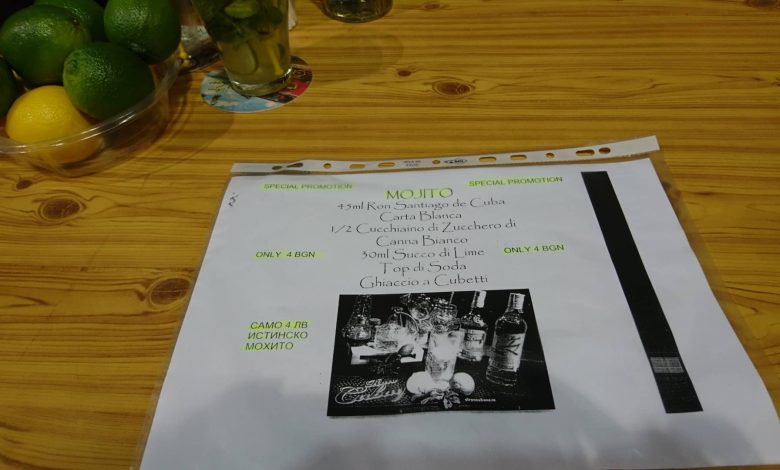 SPECIAL PROMOTION
SPECIAL PROMOTION
MOJITO
45ml Ron Santiago de Cuba
Carta Blanca
1/2 Cucchiaino di Zucchero di
Canna Bianco
30ml Succo di Lime
Top di Soda
Ghiaccio a Cubetti
ONLY 4 BGN
ONLY 4 BGN
САМО 4 ЛВ
ИСТИНСКО
МОХИТО